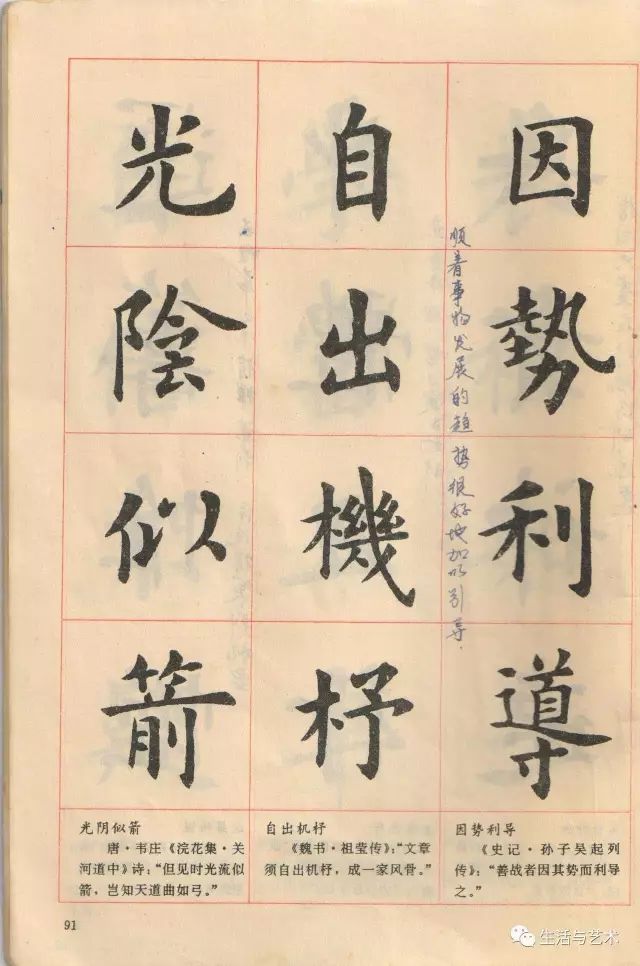 因勢利導
顺着事物发展的趋势很好地加以引导.
自出機杼
光陰似箭
光阴似箭
唐·韦庄《浣花集·关
河道中》诗:“但见时光流似
箭,岂知天道曲如弓。”
自出机杼
《魏书·祖莹传》:“文章
须自出机杼,成一家风骨。”
因势利导
《史记·孙子吴起列
传》:“善战者因其势而利导
之。”
91
生活与艺术